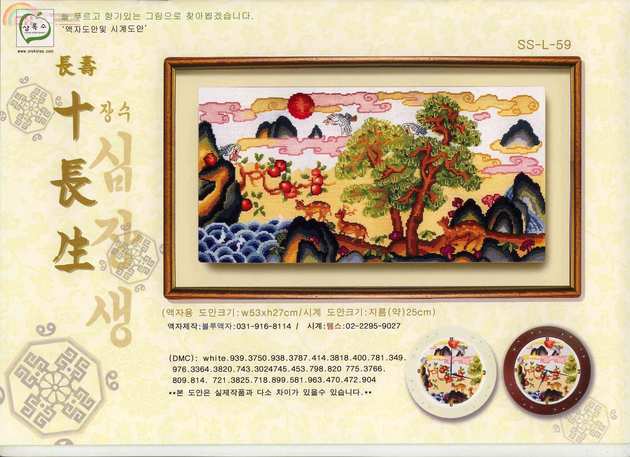 늘 푸르고 향기있는 그림으로 찾아뵙겠습니다.
'액자도안및 시계도안'
상록수
SS-L-59
長壽
장수
十長生
십장생
(액자용 도안크기:w53xh27cm/시계 도안크기:지름(약)25cm)
액자제작:블루액자:031-916-8114 / 시계:템스:02-2295-9027
(DMC): white.939.3750.938.3787.414.3818.400.781.349.
976.3364.3820.743.3024745.453.798.820 775.3766.
809.814. 721.3825.718.899.581.963.470.472.904
**본 도안은 실제작품과 다소 차이가 있을수 있습니다.**